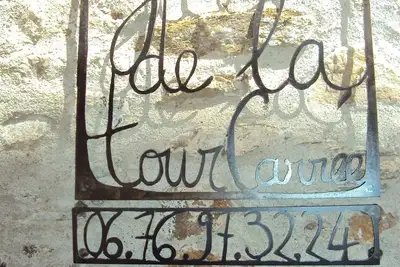 de la
tour Carree
06.76.97.32.24